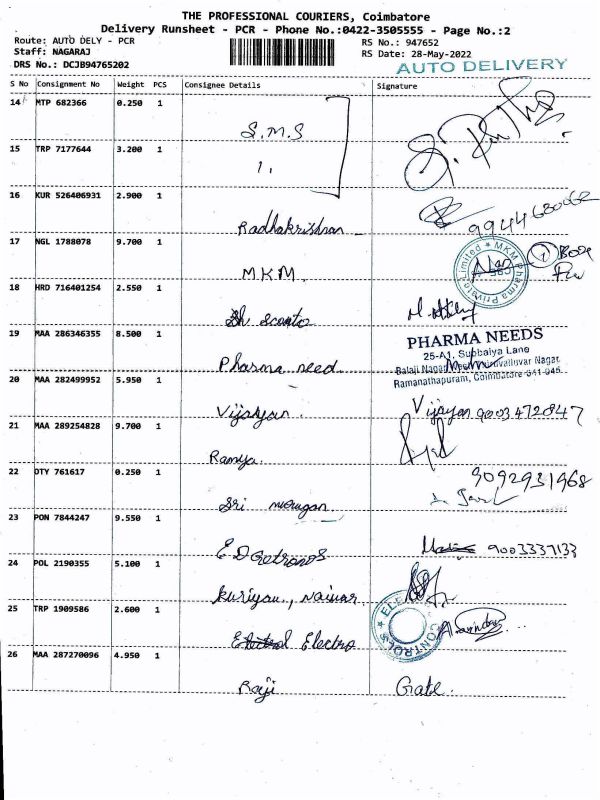 THE PROFESSIONAL COURIERS, Coimbatore
Delivery Runsheet - PCR - Phone No.:0422-3505555 - Page No.:2
Route: AUTO DELY - PCR RS No.: 947652
Staff: NAGARAJ RS Date: 28-May-2022
DRS No.: DCJB94765202 AUTO DELIVERY
S No Consignment No Weight PCS Consignee Details Signature
14 MTP 682366 0.250 1
S.M.S
15 TRP 7177644 3.200 1
1,
16 KUR 526406931 2.900 1
Radhakrishnan
17 NGL 1788078 9.700 1
MKM Pharma Private Limited
MKM.
18 HRD 716401254 2.550 1
19 MAA 286346355 8.500 1
PHARMA NEEDS
25-A1, Subbaiya Lane
Balaji Nagar
Pharma need
Ramanathapuram, Coimbatore-641 045
20 MAA 282499952 5.950 1
Vijayan Vijayan 9003472847
21 MAA 289254828 9.700 1
Ramya
22 DTY 761617 0.250 1
9092931968
Sri murugan
23 PON 7844247 9.550 1
9003337133
24 POL 2190355 5.100 1
25 TRP 1909586 2.600 1
CONTROLS
Electro
26 MAA 287270096 4.950 1
Raji Gate.